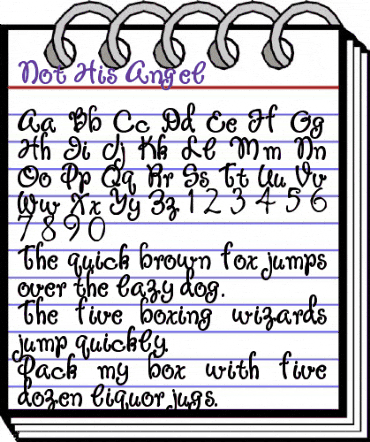 Not His Angel
Aa Bb Cc Dd Ee Ff Gg
Hh Ii Jj Kk Ll Mm Nn
Oo Pp Qq Rr Ss Tt Uu Vv
Ww Xx Yy Zz 1 2 3 4 5 6
7 8 9 0
The quick brown fox jumps
over the lazy dog.
The five boxing wizards
jump quickly.
Pack my box with five
dozen liquor jugs.